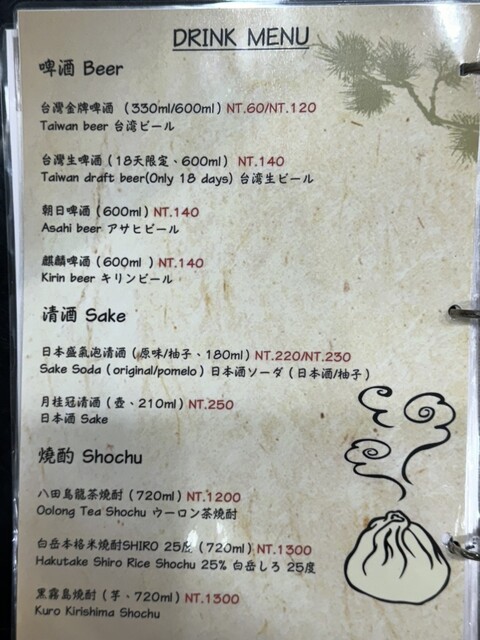 DRINK MENU
啤酒 Beer
台灣金牌啤酒 (330ml/600ml) NT.60/NT.120
Taiwan beer 台湾ビール
台灣生啤酒 (18天限定、600ml) NT.140
Taiwan draft beer(Only 18 days) 台湾生ビール
朝日啤酒 (600ml) NT.140
Asahi beer アサヒビール
麒麟啤酒 (600ml ) NT.140
Kirin beer キリンビール
清酒 Sake
日本盛氣泡清酒 (原味/柚子、180ml) NT.220/NT.230
Sake Soda (original/pomelo) 日本酒ソーダ (日本酒/柚子)
月桂冠清酒 (壺、210ml) NT.250
日本酒 Sake
燒酌 Shochu
八田烏龍茶燒酎 (720ml) NT.1200
Oolong Tea Shochu ウーロン茶焼酎
白岳本格米燒酎SHIRO 25度 (720ml) NT.1300
Hakutake Shiro Rice Shochu 25% 白岳しろ 25度
黑霧島燒酎 (芋、720ml) NT.1300
Kuro Kirishima Shochu